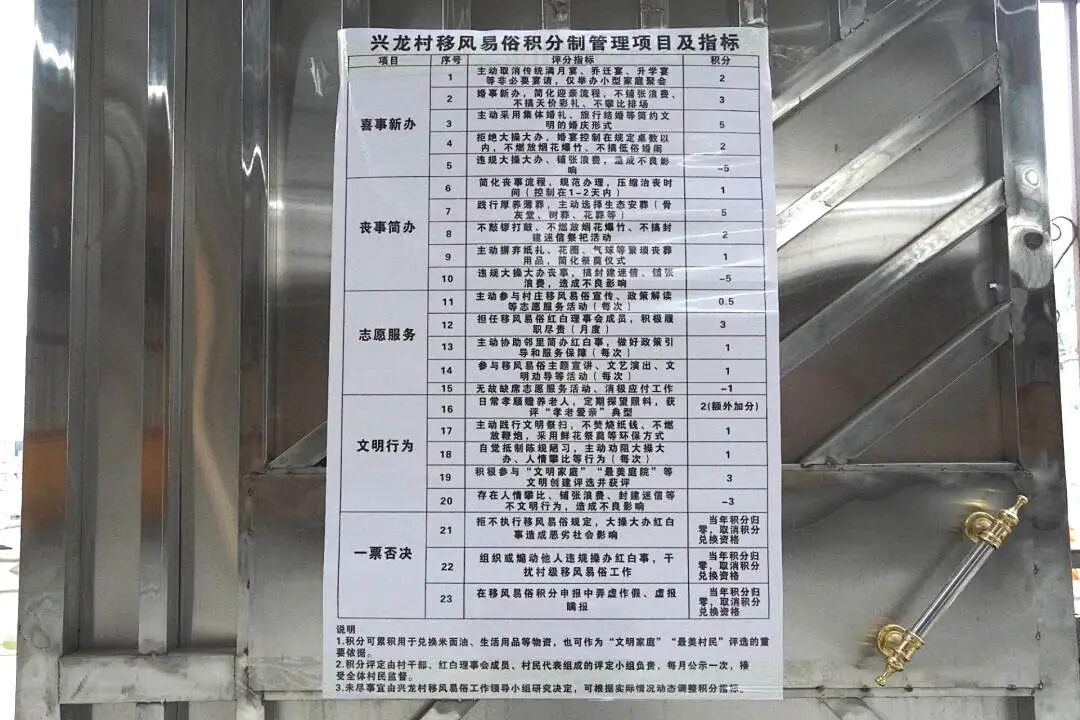 兴龙村移风易俗积分制管理项目及指标
项目 序号 评分指标 积分
喜事新办
1 主动取消传统满月宴、乔迁宴、升学宴
等非必要宴请,仅举办小型家庭聚会 2
2 婚事新办,简化迎亲流程,不铺张浪费、
不搞天价彩礼、不攀比排场 3
3 主动采用集体婚礼、旅行结婚等简约文
明的婚庆形式 5
4 拒绝大操大办,婚宴控制在规定桌数以
内,不燃放烟花爆竹、不搞低俗婚闹 2
5 违规大操大办、铺张浪费,造成不良影
响 -5
丧事简办
6 简化丧事流程,规范办理,压缩治丧时
间(控制在1-2天内) 1
7 践行厚养薄葬,主动选择生态安葬(骨
灰堂、树葬、花葬等) 5
8 不敲锣打鼓、不燃放烟花爆竹、不搞封
建迷信祭祀活动 2
9 主动摒弃纸扎、花圈、气球等繁琐丧葬
用品,简化祭奠仪式 1
10 违规大操大办丧事,搞封建迷信、铺张
浪费,造成不良影响 -5
志愿服务
11 主动参与村庄移风易俗宣传、政策解读
等志愿服务活动(每次) 0.5
12 担任移风易俗红白理事会成员,积极履
职尽责(月度) 3
13 主动协助邻里简办红白事,做好政策引
导和服务保障(每次) 1
14 参与移风易俗主题宣讲、文艺演出、文
明劝导等活动(每次) 1
15 无故缺席志愿服务活动、消极应付工作 -1
文明行为
16 日常孝顺赡养老人,定期探望照料,获
评“孝老爱亲”典型 2(额外加分)
17 主动践行文明祭扫,不焚烧纸钱、不燃
放鞭炮,采用鲜花祭奠等环保方式 1
18 自觉抵制陈规陋习,主动劝阻大操大
办、人情攀比等行为(每次) 1
19 积极参与“文明家庭”“最美庭院”等
文明创建评选并获评 3
20 存在人情攀比、铺张浪费、封建迷信等
不文明行为,造成不良影响 -3
一票否决
21 拒不执行移风易俗规定,大操大办红白
事造成恶劣社会影响 当年积分归
零,取消积分
兑换资格
22 组织或煽动他人违规操办红白事,干
扰村级移风易俗工作 当年积分归
零,取消积分
兑换资格
23 在移风易俗积分申报中弄虚作假、虚报
瞒报 当年积分归
零,取消积分
兑换资格
说明
1.积分可累积用于兑换米面油、生活用品等物资,也可作为“文明家庭”“最美村民”评选的重
要依据。
2.积分评定由村干部、红白理事会成员、村民代表组成的评定小组负责,每月公示一次,接
受全体村民监督。
3.未尽事宜由兴龙村移风易俗工作领导小组研究决定,可根据实际情况动态调整积分指标。